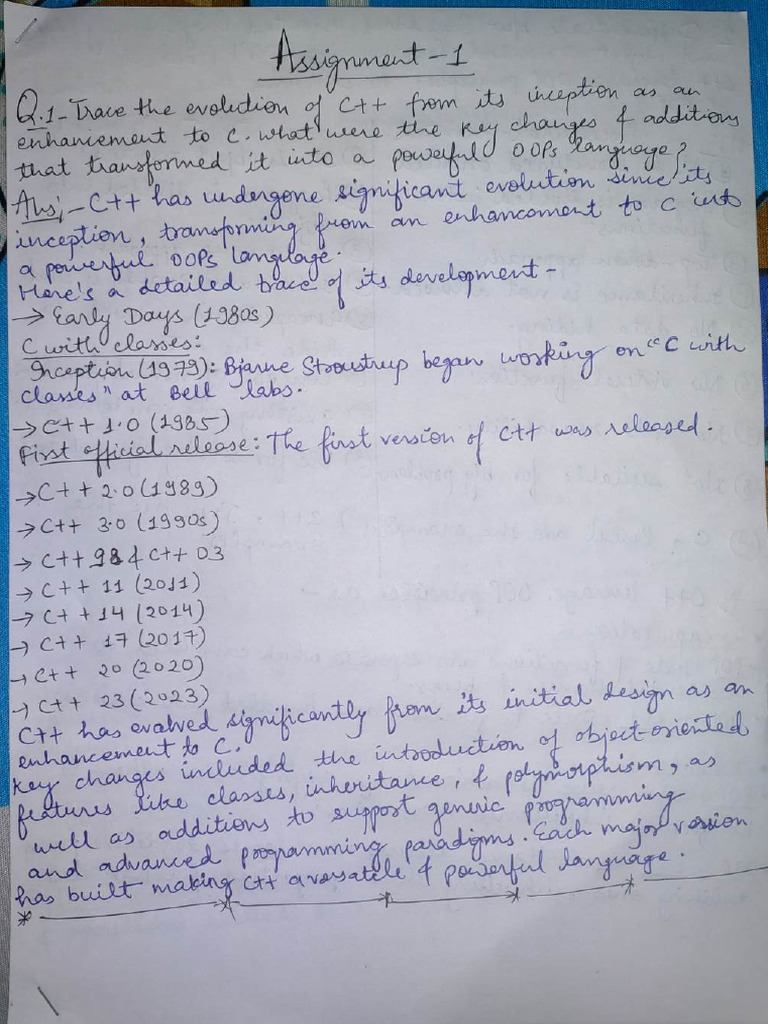 Assignment-1
Q.1- Trace the evolution of C++ from its inception as an
enhancement to C. what were the key changes & additions
that transformed it into a powerful OOPs language?
Ans:- C++ has undergone significant evolution since its
inception, transforming from an enhancement to C into
a powerful OOPs language.
Here's a detailed trace of its development-
→ Early Days (1980s)
C with classes:
Inception (1979): Bjarne Stroustrup began working on "C with
classes" at Bell labs.
→ C++ 1.0 (1985)
First official release: The first version of C++ was released.
→ C++ 2.0 (1989)
→ C++ 3.0 (1990s)
→ C++ 98 & C++ 03
→ C++ 11 (2011)
→ C++ 14 (2014)
→ C++ 17 (2017)
→ C++ 20 (2020)
→ C++ 23 (2023)
C++ has evolved significantly from its initial design as an
enhancement to C.
Key changes included the introduction of object-oriented
features like classes, inheritance, & polymorphism, as
well as additions to support generic programming
and advanced programming paradigms. Each major version
has built making C++ a versatile & powerful language.